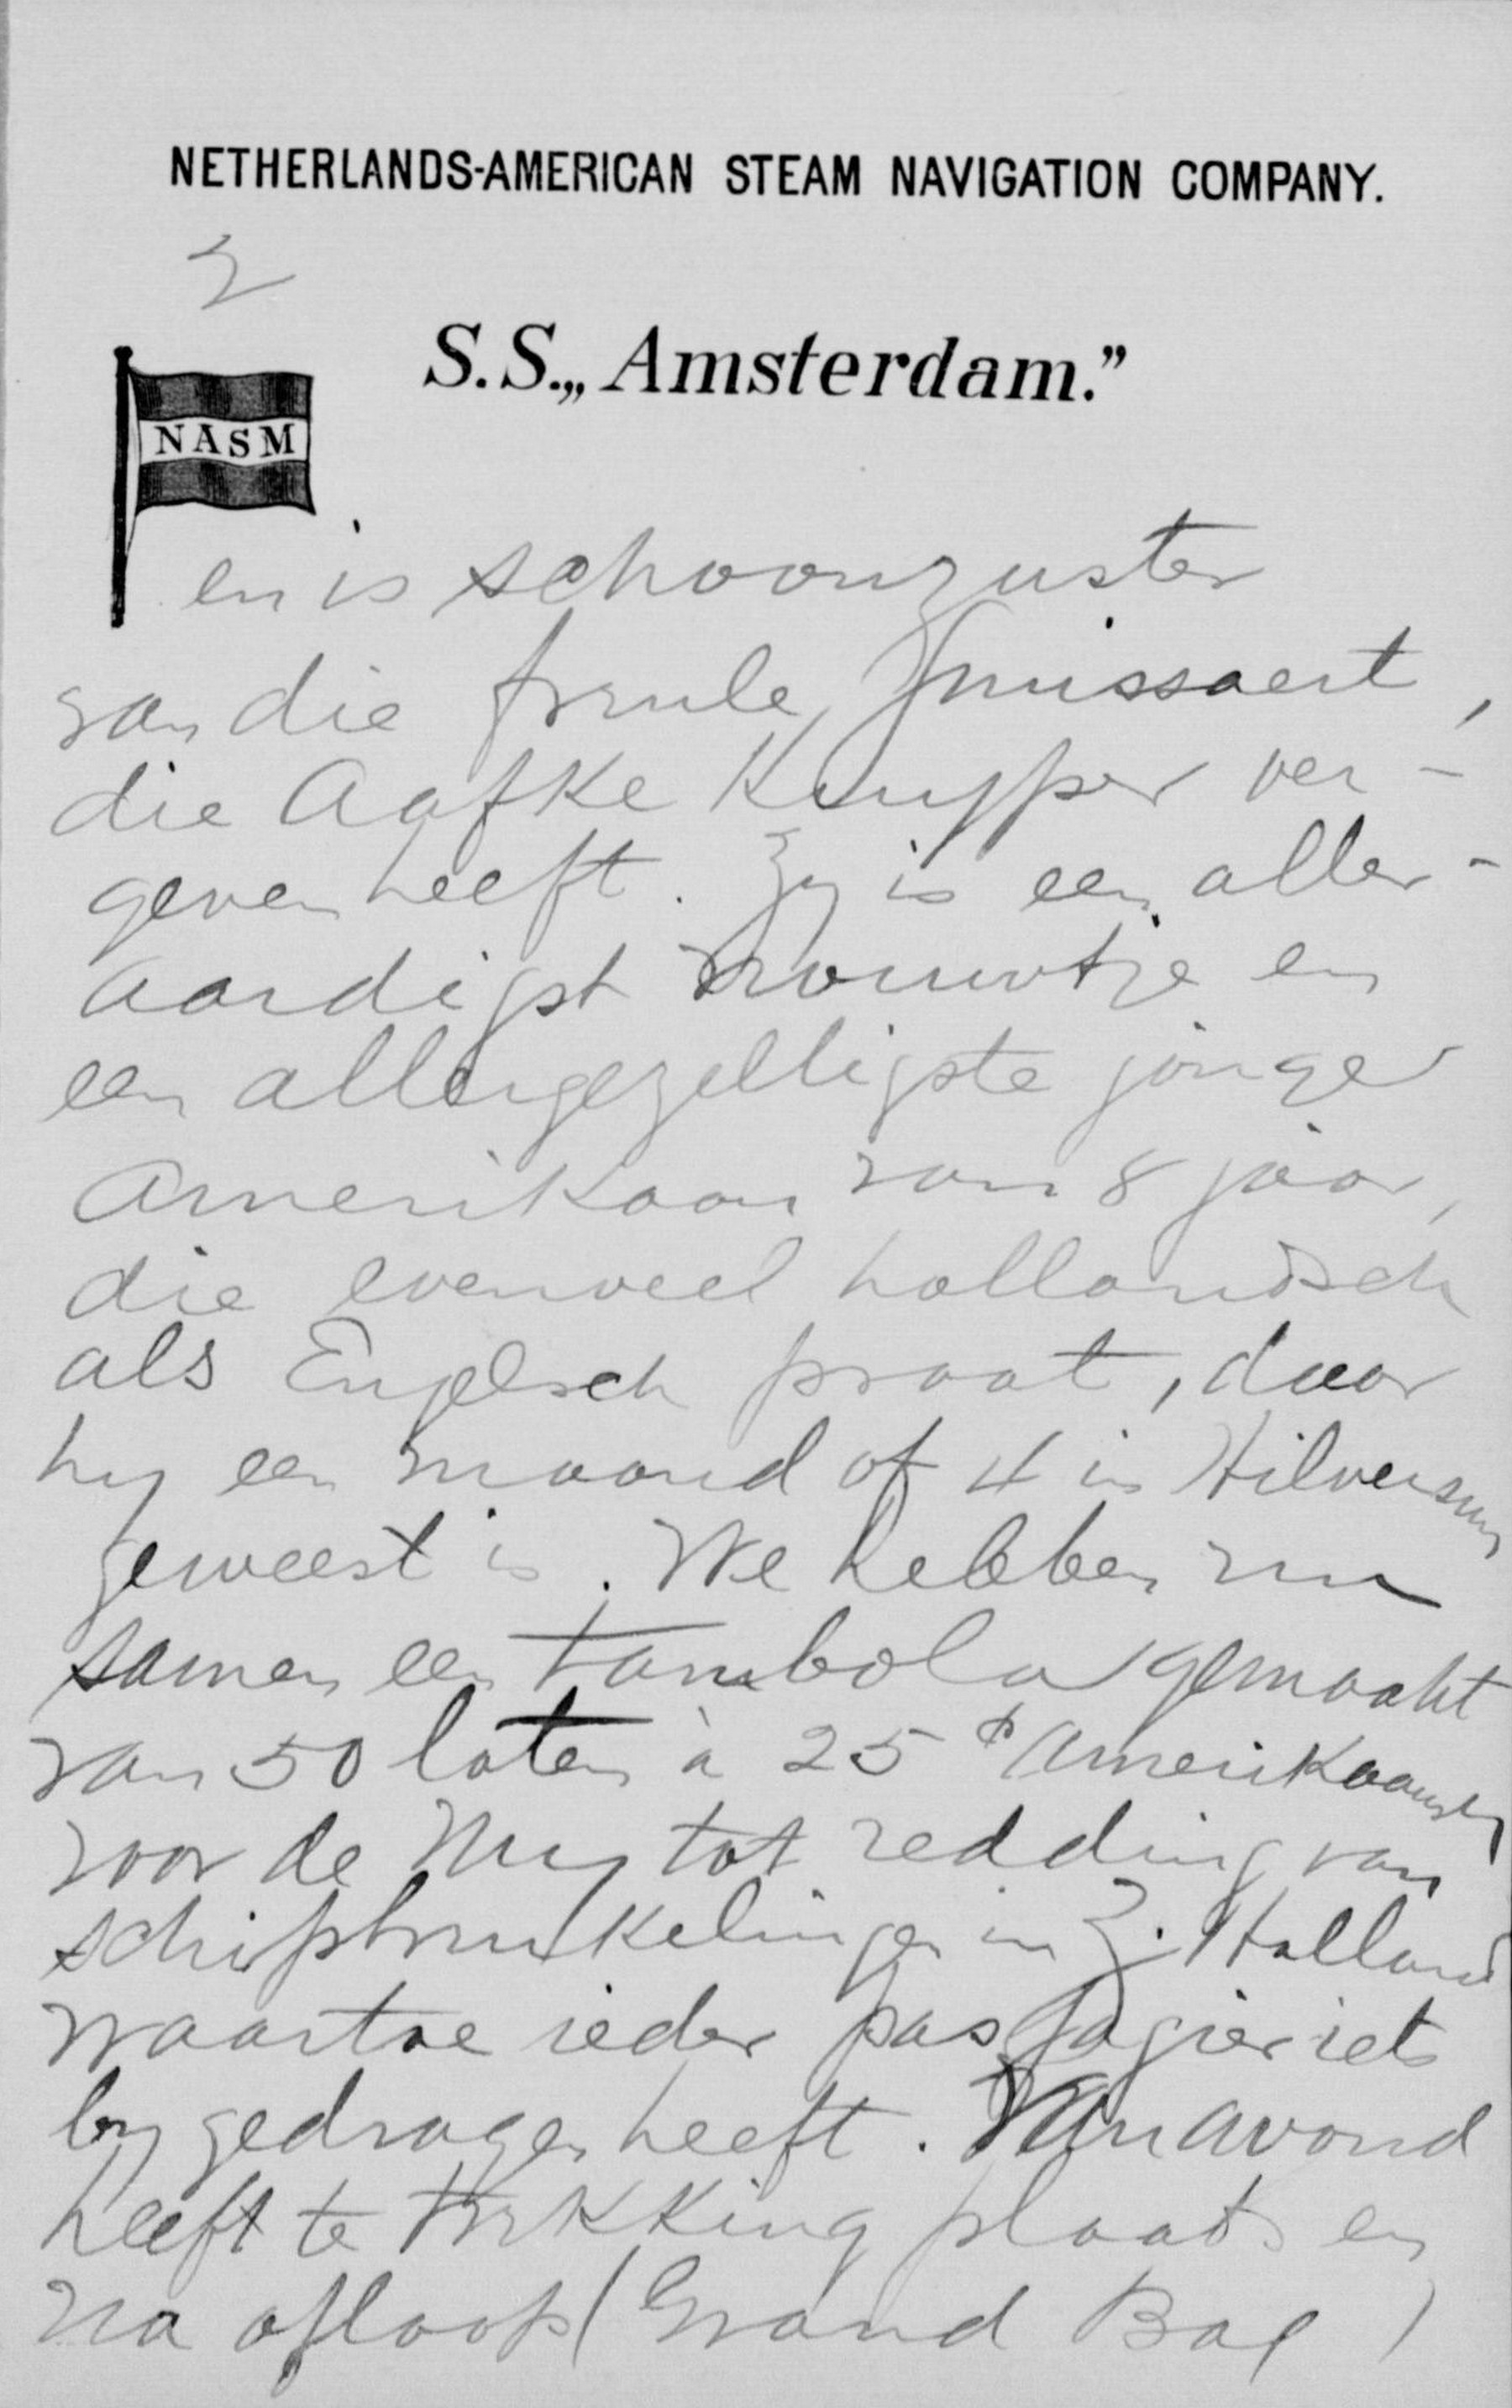 NETHERLANDS-AMERICAN STEAM NAVIGATION COMPANY.
2
S.S. „Amsterdam.”
NASM
en is schoonzuster
van die freule
die Aafke Kuyper ver-
geven heeft. Zy is een aller-
aardigst vrouwtje en
een allergezelligste jonge
Amerikaan van 8 jaar,
die evenveel hollandsch
als Engelsch praat, daar
hy een maand of 4 in Hilversum
geweest is. We hebben nu
samen een tombola gemaakt
van 50 loten à 25 ¢ Amerikaansch
voor de My tot redding van
schipbreukelingen in Z. Holland
waartoe ieder passagier iets
bygedragen heeft. Van avond
heeft te trekking plaats en
na afloop (Grand Bal)